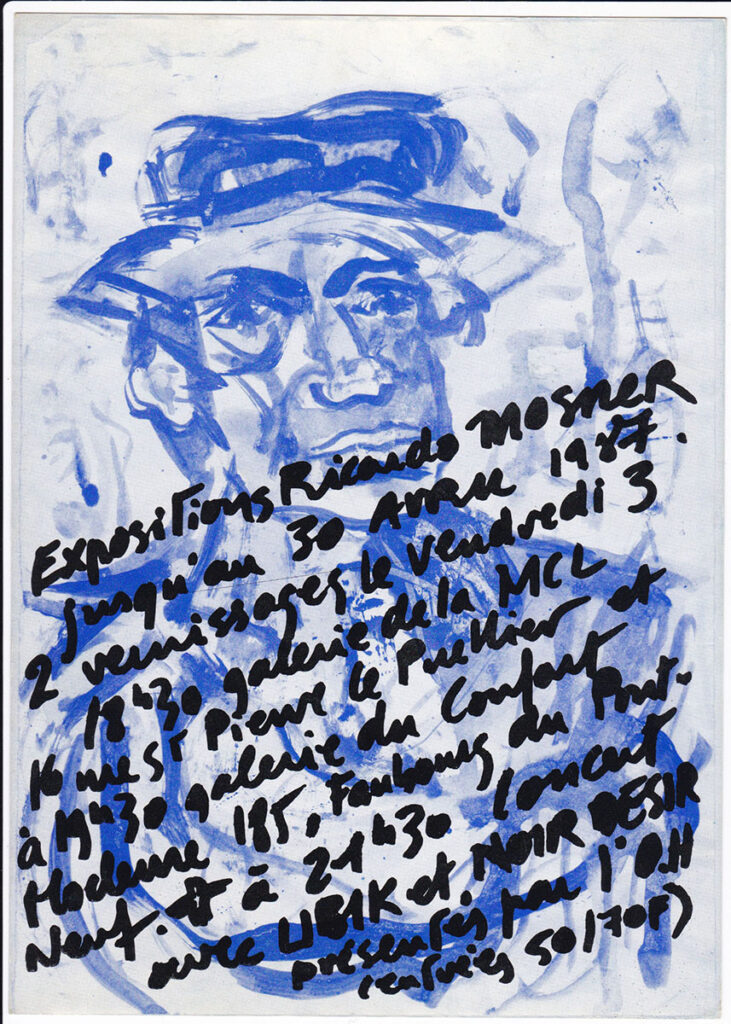 Expositions Ricardo MOSNER
jusqu'au 30 Avril 1987.
2 vernissages le vendredi 3
18h30 galerie de la MCL
16 rue St Pierre le Puellier et
à 19h30 galerie du Confort
Moderne 185, Faubourg du Pont-
Neuf. et à 21h30 concert
avec UBIK et NOIR DESIR
présentés par l'O.H
(entrées 50/70F)